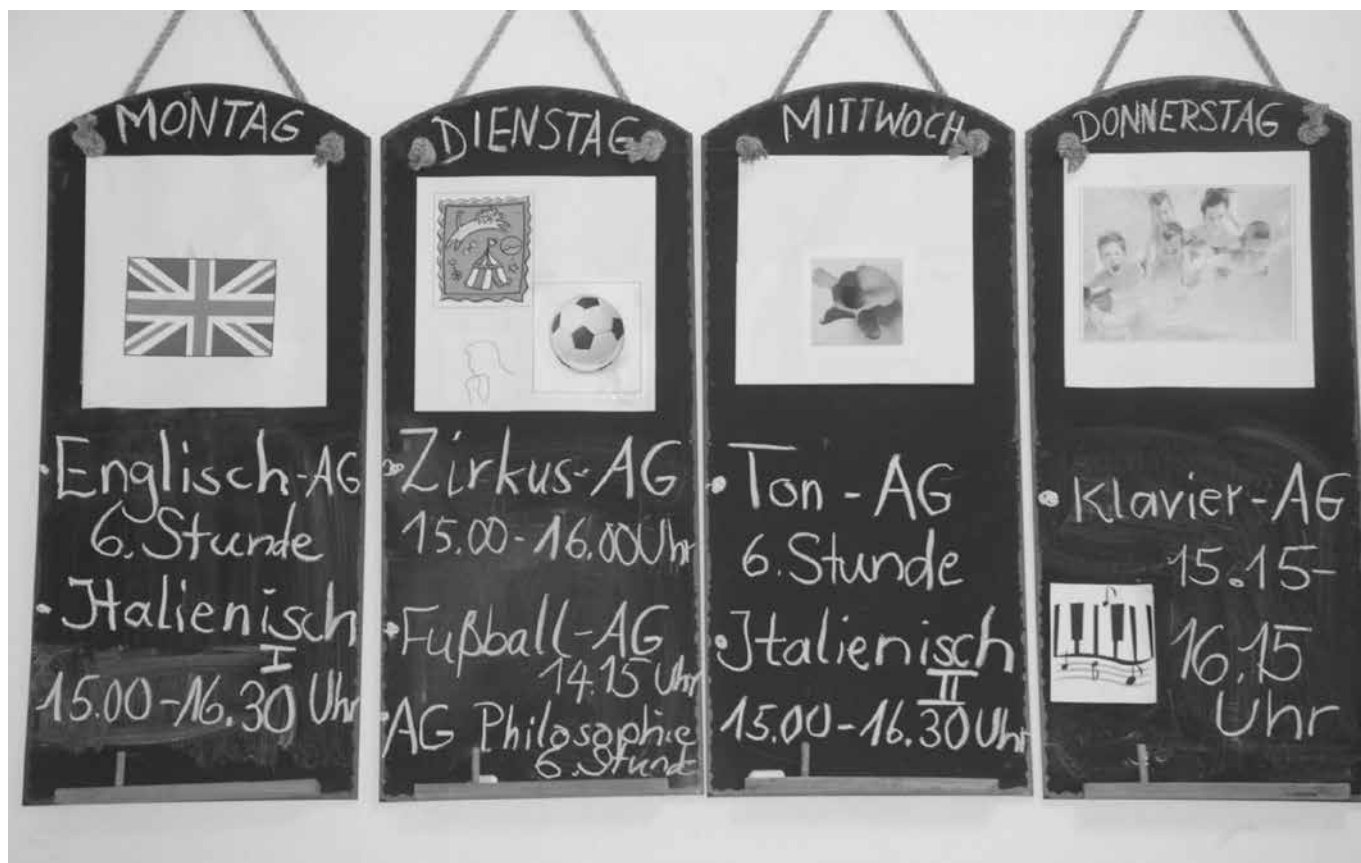 MONTAG
• Englisch-AG
6. Stunde
• Italienisch
I
15.00-16.30 Uhr
DIENSTAG
• Zirkus-AG
15.00-16.00 Uhr
• Fußball-AG
14.15 Uhr
• AG Philosophie
6. Stund
MITTWOCH
• Ton-AG
6. Stunde
• Italienisch
II
15.00-16.30 Uhr
DONNERSTAG
• Klavier-AG
15.15-
16.15
Uhr